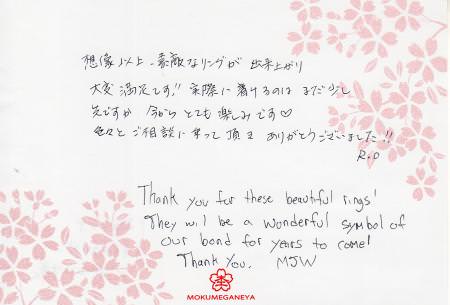 想像以上、素敵なリングが出来上がり
大変満足です!! 実際に着けるのはまだ少し
先ですが今からとても楽しみです♡
色々とご相談に乗って頂き ありがとうございました!!
R.O
Thank you for these beautiful rings!
They will be a wonderful symbol of
our bond for years to come!
Thank You. MJW
MOKUMEGANEYA